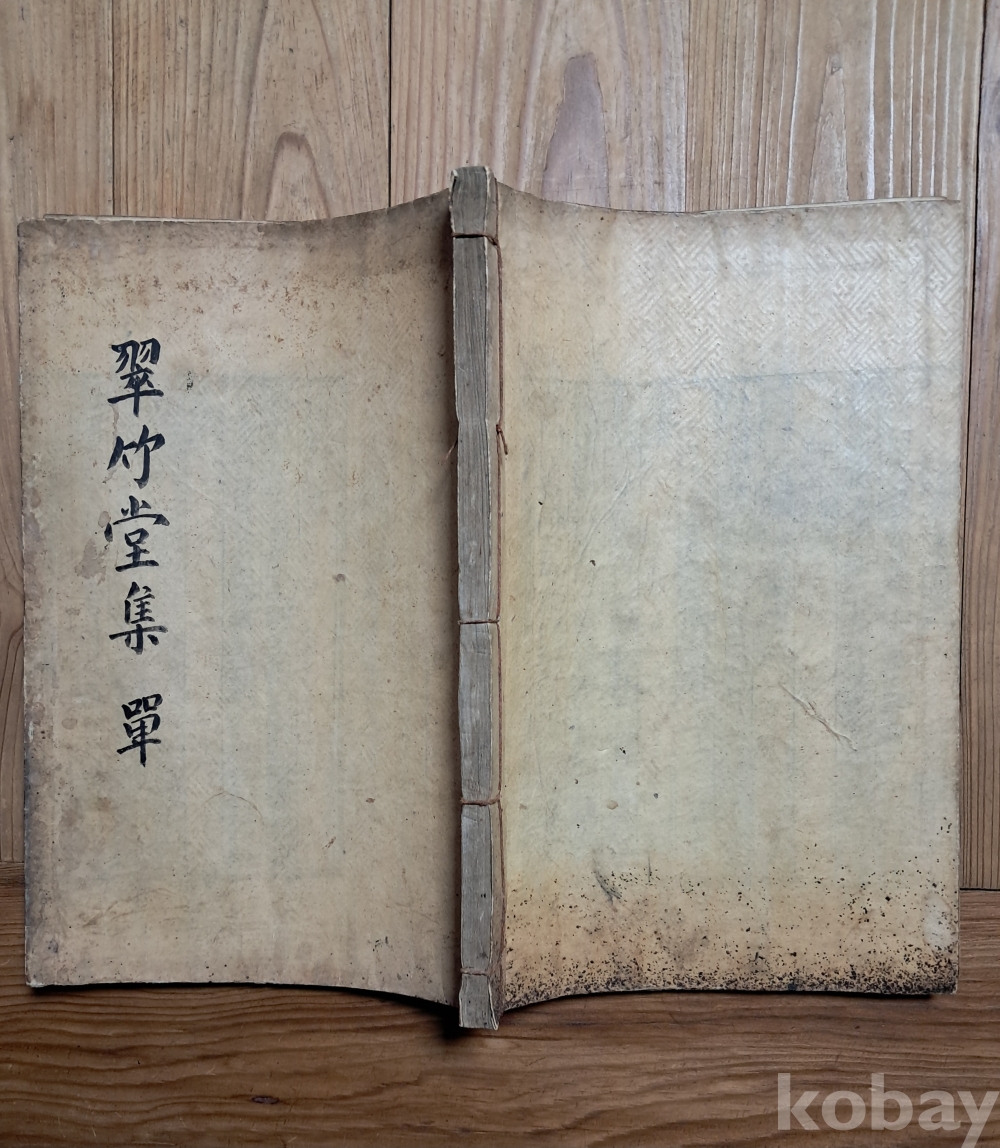 翠竹堂集 單
kobay